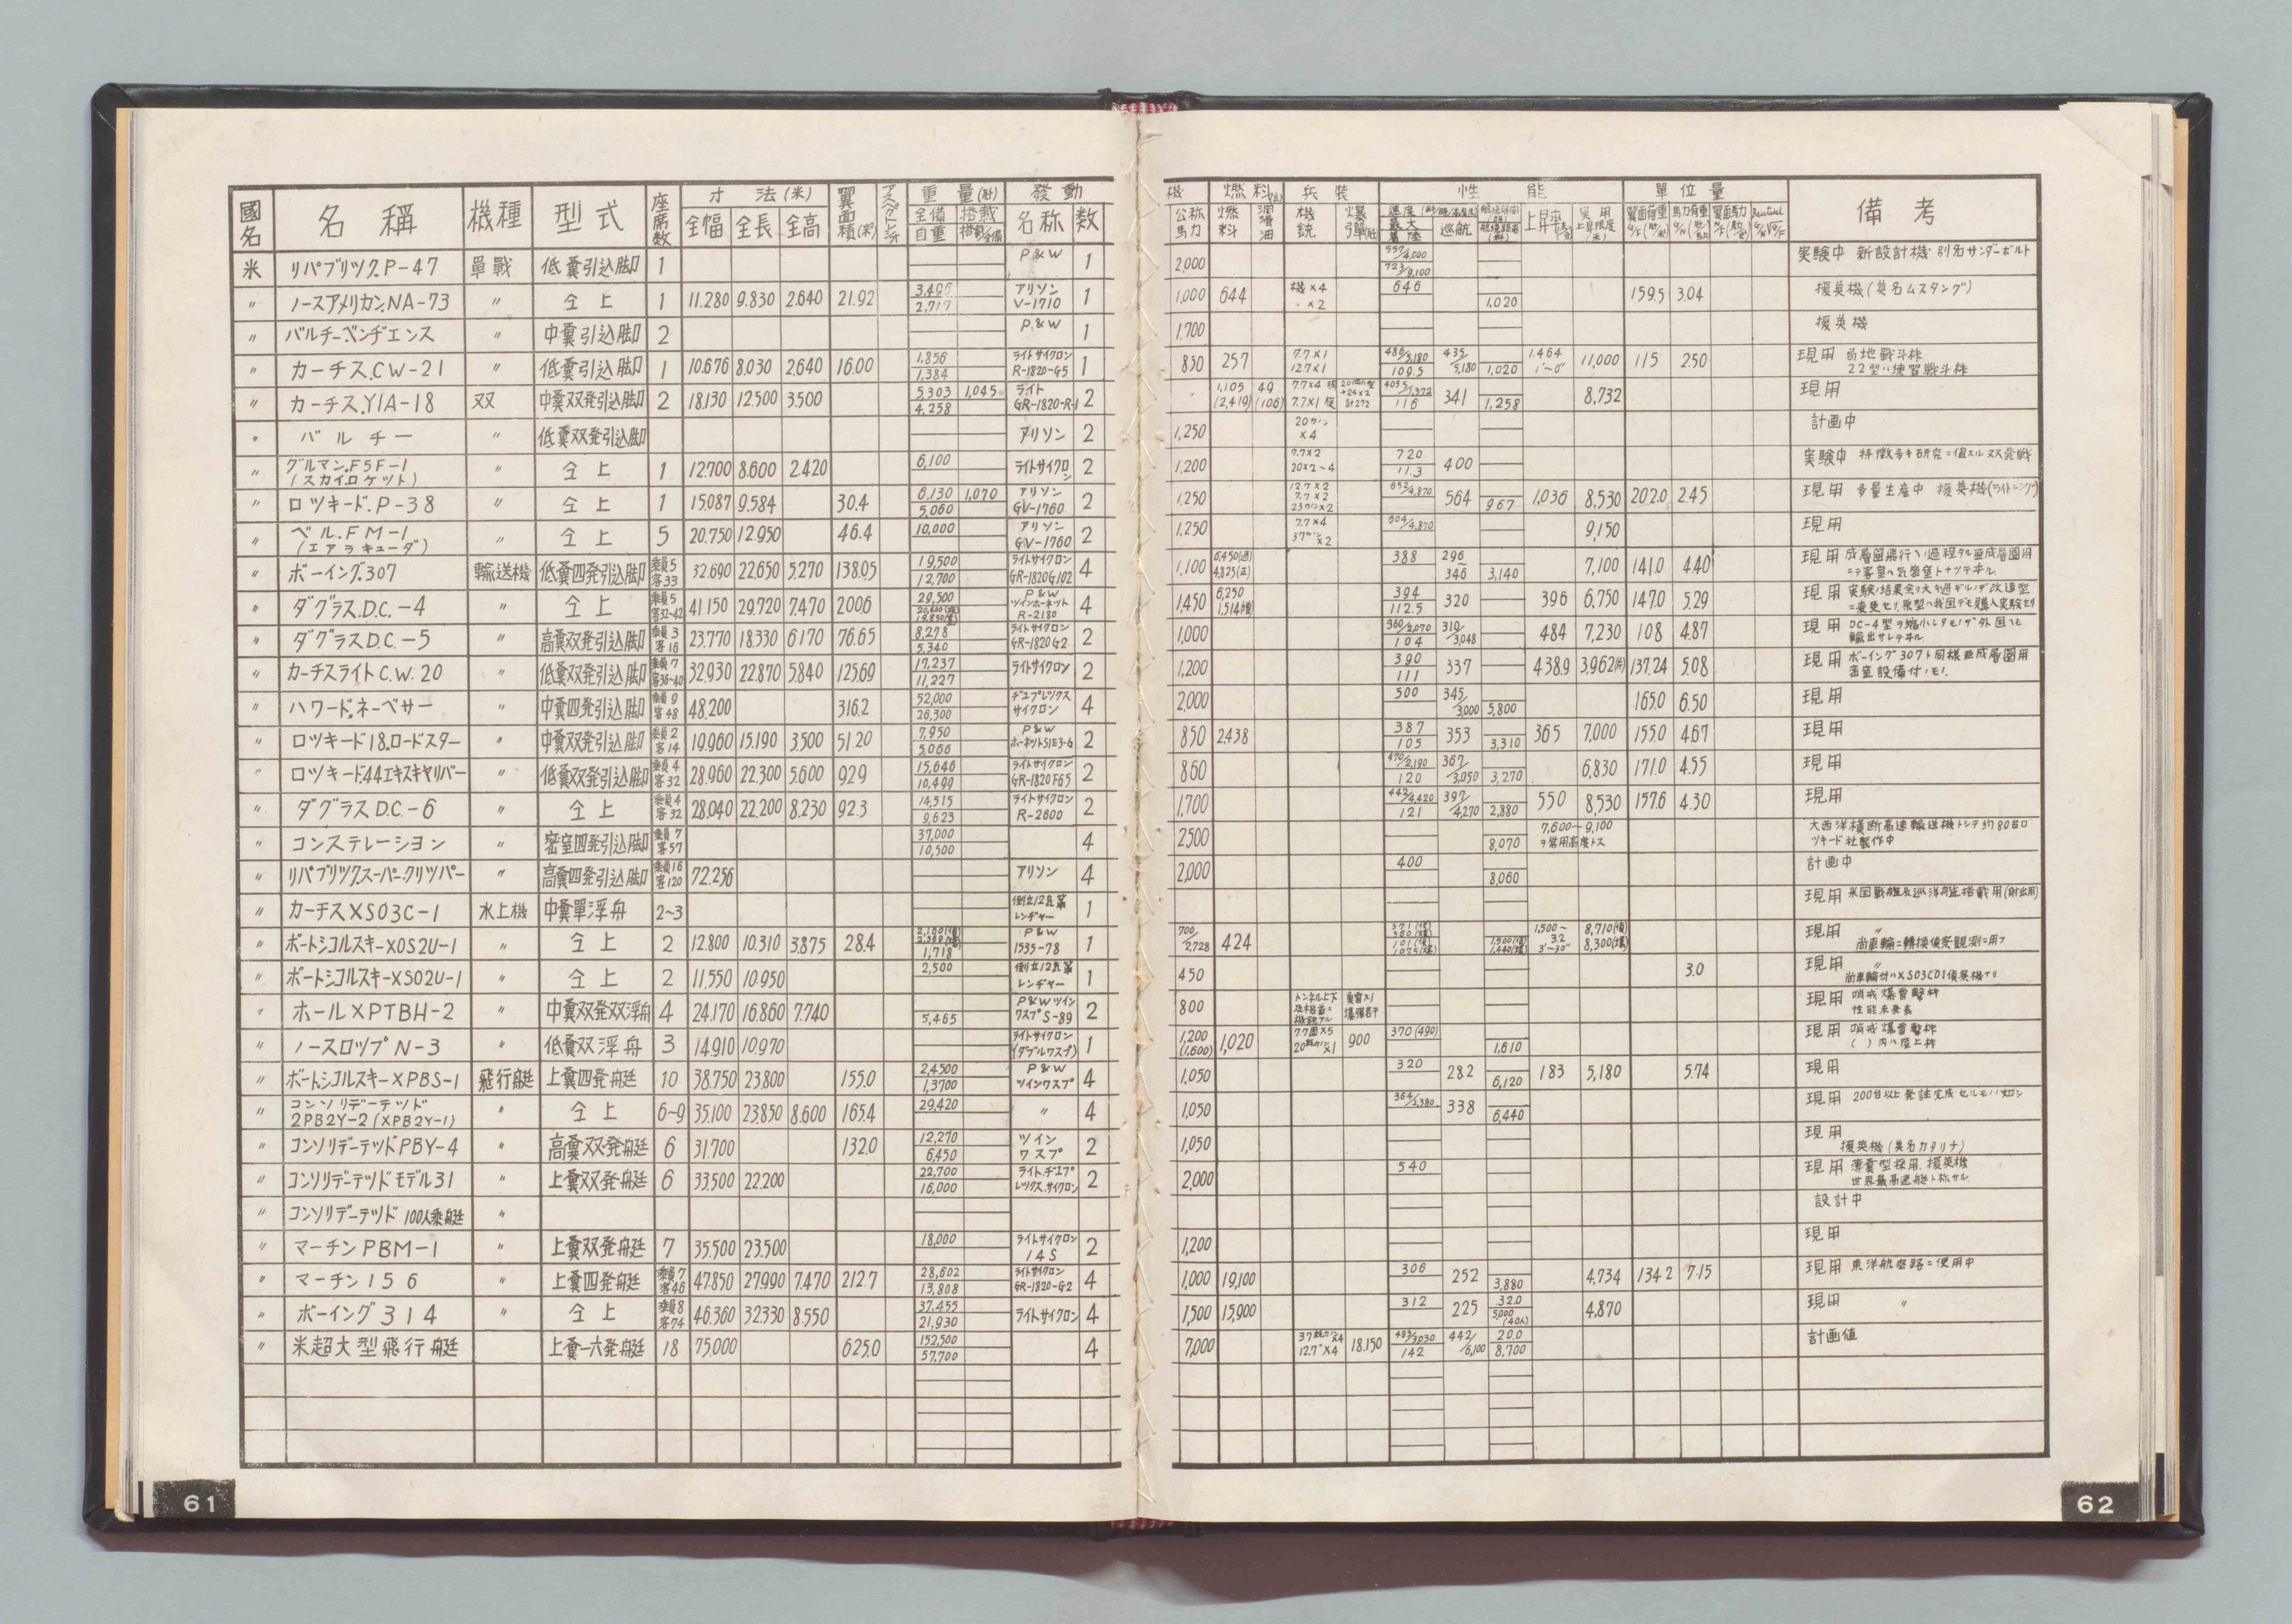 國名 名稱 機種 型式 座席数 寸法(米) 全幅 全長 全高 翼面積(米²) アスペクト比 重量(瓩) 全備 自重 搭載 搭載/全備 發動 名称 数
米 リパブリツク.P-47 單戰 低翼引込脚 1 P&W 1
〃 ノースアメリカン.NA-73 〃 仝上 1 11.280 9.830 2.640 21.92 2,717 アリソン V-1710 1
〃 バルチーベンヂエンス 〃 中翼引込脚 2 P.&W 1
〃 カーチス.CW-21 〃 低翼引込脚 1 10.676 8.030 2.640 16.00 1,856 1,384 ライトサイクロン R-1820-G5 1
〃 カーチス.Y1A-18 双 中翼双発引込脚 2 18.130 12.500 3.500 5,303 4,258 1,045 ライト GR-1820-R-1 2
〃 バルチー 〃 低翼双発引込脚 アリソン 2
〃 グルマン.F5F-1 (スカイロケツト) 〃 仝上 1 12.700 8.600 2.420 6,100 ライトサイクロン 2
〃 ロツキード.P-38 〃 仝上 1 15.087 9.584 30.4 6,130 5,060 1,070 アリソン GV-1760 2
〃 ベル.FM-1 (エアラキューダ) 〃 仝上 5 20.750 12.950 46.4 10,000 アリソン GV-1760 2
〃 ボーイング.307 輸送機 低翼四発引込脚 乗員5 客33 32.690 22.650 5.270 138.05 19,500 12,700 ライトサイクロン GR-1820G102 4
〃 ダグラス.D.C.-4 〃 仝上 乗員5 客32~42 41.150 29.720 7.470 200.6 29,500 P&W ツインホーネツト R-2180 4
〃 ダグラスD.C.-5 〃 高翼双発引込脚 乗員3 客16 23.770 18.330 6.170 76.65 8,278 5,340 ライトサイクロン GR-1820G2 2
〃 カーチスライトC.W.20 〃 低翼双発引込脚 乗員7 客36~40 32.930 22.870 5.840 125.69 17,237 11,227 ライトサイクロン 2
〃 ハワード.ネーベサー 〃 中翼四発引込脚 乗員9 客48 48.200 316.2 52,000 26,300 ヂユプレツクス サイクロン 4
〃 ロツキード18.ロードスター 〃 中翼双発引込脚 乗員2 客14 19.960 15.190 3.500 51.20 7,950 5,066 P&W ホーネツトS1E3-G 2
〃 ロツキード44エキスキヤリバー 〃 低翼双発引込脚 乗員4 客32 28.960 22.300 5.600 92.9 15,646 10,499 ライトサイクロン GR-1820F65 2
〃 ダグラスD.C.-6 〃 仝上 乗員4 客32 28.040 22.200 8.230 92.3 14,515 9,623 ライトサイクロン R-2600 2
〃 コンステレーシヨン 〃 密室四発引込脚 乗員7 客57 37,000 10,500 4
〃 リパブリツク.スーパー.クリツパー 〃 高翼四発引込脚 乗員16 客120 72.256 アリソン 4
〃 カーチスXSO3C-1 水上機 中翼單浮舟 2~3 倒立12気筒 レンヂヤー 1
〃 ボートシコルスキーXOS2U-1 〃 仝上 2 12.800 10.310 3.875 28.4 1,718 P&W 1535-78 1
〃 ボートシコルスキーXSO2U-1 〃 仝上 2 11.550 10.950 2,500 倒立12気筒 レンヂヤー 1
〃 ホールXPTBH-2 〃 中翼双発双浮舟 4 24.170 16.860 7.740 5,465 P&Wツイン ワスプS-89 2
〃 ノースロツプN-3 〃 低翼双浮舟 3 14.910 10.970 ライトサイクロン (ダブルワスプ) 1
〃 ボートシコルスキーXPBS-1 飛行艇 上翼四発艇 10 38.750 23.800 155.0 2,4500 1,3700 P&W ツインワスプ 4
〃 コンソリデーテツド 2PB2Y-2(XPB2Y-1) 〃 仝上 6~9 35.100 23.850 8.600 165.4 29,420 〃 4
〃 コンソリデーテツドPBY-4 〃 高翼双発艇 6 31.700 132.0 12,270 6,450 ツイン ワスプ 2
〃 コンソリデーテツドモデル31 〃 上翼双発艇 6 33.500 22.200 22,700 16,000 ライト.ヂユプ レツクス.サイクロン 2
〃 コンソリデーテツド 100人乗艇 〃
〃 マーチンPBM-1 〃 上翼双発艇 7 35.500 23.500 18,000 ライトサイクロン 14S 2
〃 マーチン156 〃 上翼四発艇 乗員7 客46 47.850 27.990 7.470 212.7 28,602 13,808 ライトサイクロン GR-1820-G2 4
〃 ボーイング314 〃 仝上 乗員8 客74 46.360 32.330 8.550 37,455 21,930 ライトサイクロン 4
〃 米超大型飛行艇 上翼一六発艇 18 75.000 625.0 152,500 57,700 4
61
機 公称馬力 燃料 燃料 潤滑油 兵装 機銃 爆弾 性能 速度 最大 着陸 巡航 上昇率 実用上昇限度(米) 單位量 翼面荷重 馬力荷重 翼面馬力 備考
2,000 557/4,000 723/9,100 実験中 新設計機 別名サンダーボルト
1,000 644 機×4 〃×2 646 1,020 159.5 3.04 援英機(英名ムスタング)
1,700 援英機
850 257 7.7×1 12.7×1 486/5,180 109.5 435/5,180 1,020 1.464 1'~0" 11,000 115 2.50 現用 局地戦斗機 22型ハ練習戦斗機
〃 1,105 (2,419) 49 (106) 7.7×4 7.7×1 116 341 1,258 8,732 現用
1,250 20カノン×4 計画中
1,200 7.7×2 20×2~4 720 11.3 400 実験中 特徴多キ研究ニ値スル双発戦
1,250 12.7×2 7.7×2 23カノン×2 652/4,870 564 967 1,036 8,530 202.0 2.45 現用 多量生産中 援英機(ライトニング)
1,250 7.7×4 37カノン×2 604/4,870 9,150 現用
1,100 6,450(過) 4,825(正) 388 296~346 3,140 7,100 141.0 4.40 現用 成層圏飛行ヘノ過程タル亜成層圏用ニテ客室ハ気密室トナツテヰル
1,450 6,250 1,514 394 112.5 320 396 6,750 147.0 5.29 現用 実験ノ結果余リ大キ過ギルノデ改造型ニ変更セリ.原型ハ我国デモ購入実験セリ
1,000 360/2,070 104 310/3,048 484 7,230 108 4.87 現用 DC-4型ヲ縮小シタモノデ外国ヘモ輸出サレテヰル
1,200 390 111 337 438.9 3,962(片) 137.24 5.08 現用 ボーイング307ト同様亜成層圏用密室設備付ノモノ
2,000 500 345/3,000 5,800 165.0 6.50 現用
850 2,438 387 105 353 3,310 365 7,000 155.0 4.67 現用
860 470/2,190 120 367/3,050 3,270 6,830 171.0 4.55 現用
1,700 442/4,420 121 397/4,270 2,880 550 8,530 157.6 4.30 現用
2500 8,070 7,600~9,100 ヲ常用高度トス 大西洋横断高速輸送機トシテ約80台ロツキード社製作中
2,000 400 8,060 計画中
現用 米国戦艦及巡洋艦搭載用(射出用)
700/2,728 424 1,500~ 3.2 3'~30" 8,710(偵) 8,300(爆) 現用 〃 尚車輪ニ轉換偵察観測ニ用フ
450 3.0 現用 〃 尚車輪付ハXSO3CO1偵察機ナリ
800 現用 哨戒爆雷撃機 性能未発表
1,200 (1,600) 1,020 7.7固×5 20粍カノン×1 900 370(490) 1,610 現用 哨戒爆雷撃機 ( )内ハ陸上機
1,050 320 282 6,120 183 5,180 5.74 現用
1,050 338 6,440 現用 200台以上発註完成セルモノハ
1,050 現用 援英機(英名カタリナ)
2,000 540 現用 薄翼型採用.援英機 世界最高速艇ト称サル
設計中
1,200 現用
1,000 19,100 306 252 3,880 4,734 134.2 7.15 現用 東洋航空路ニ使用中
1,500 15,900 312 225 32.0 5,000 (40人) 4,870 現用 〃
7,000 37粍カノン×4 12.7〃×4 18.150 483/3,030 142 442/6,100 20.0 8,700 計画値
62